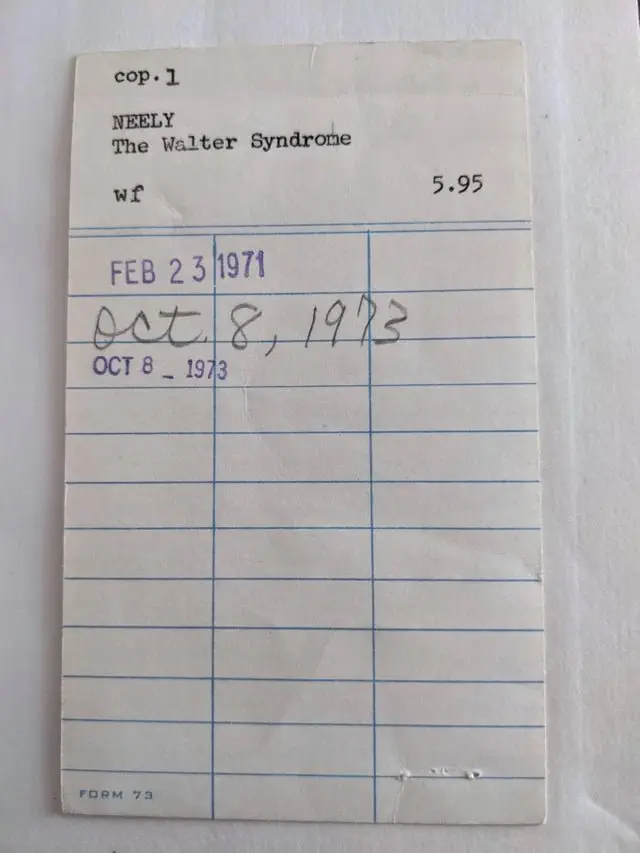 cop.1
NEELY
The Walter Syndrome
wf 5.95
FEB 23 1971
Oct. 8, 1973
OCT 8 - 1973
FORM 73